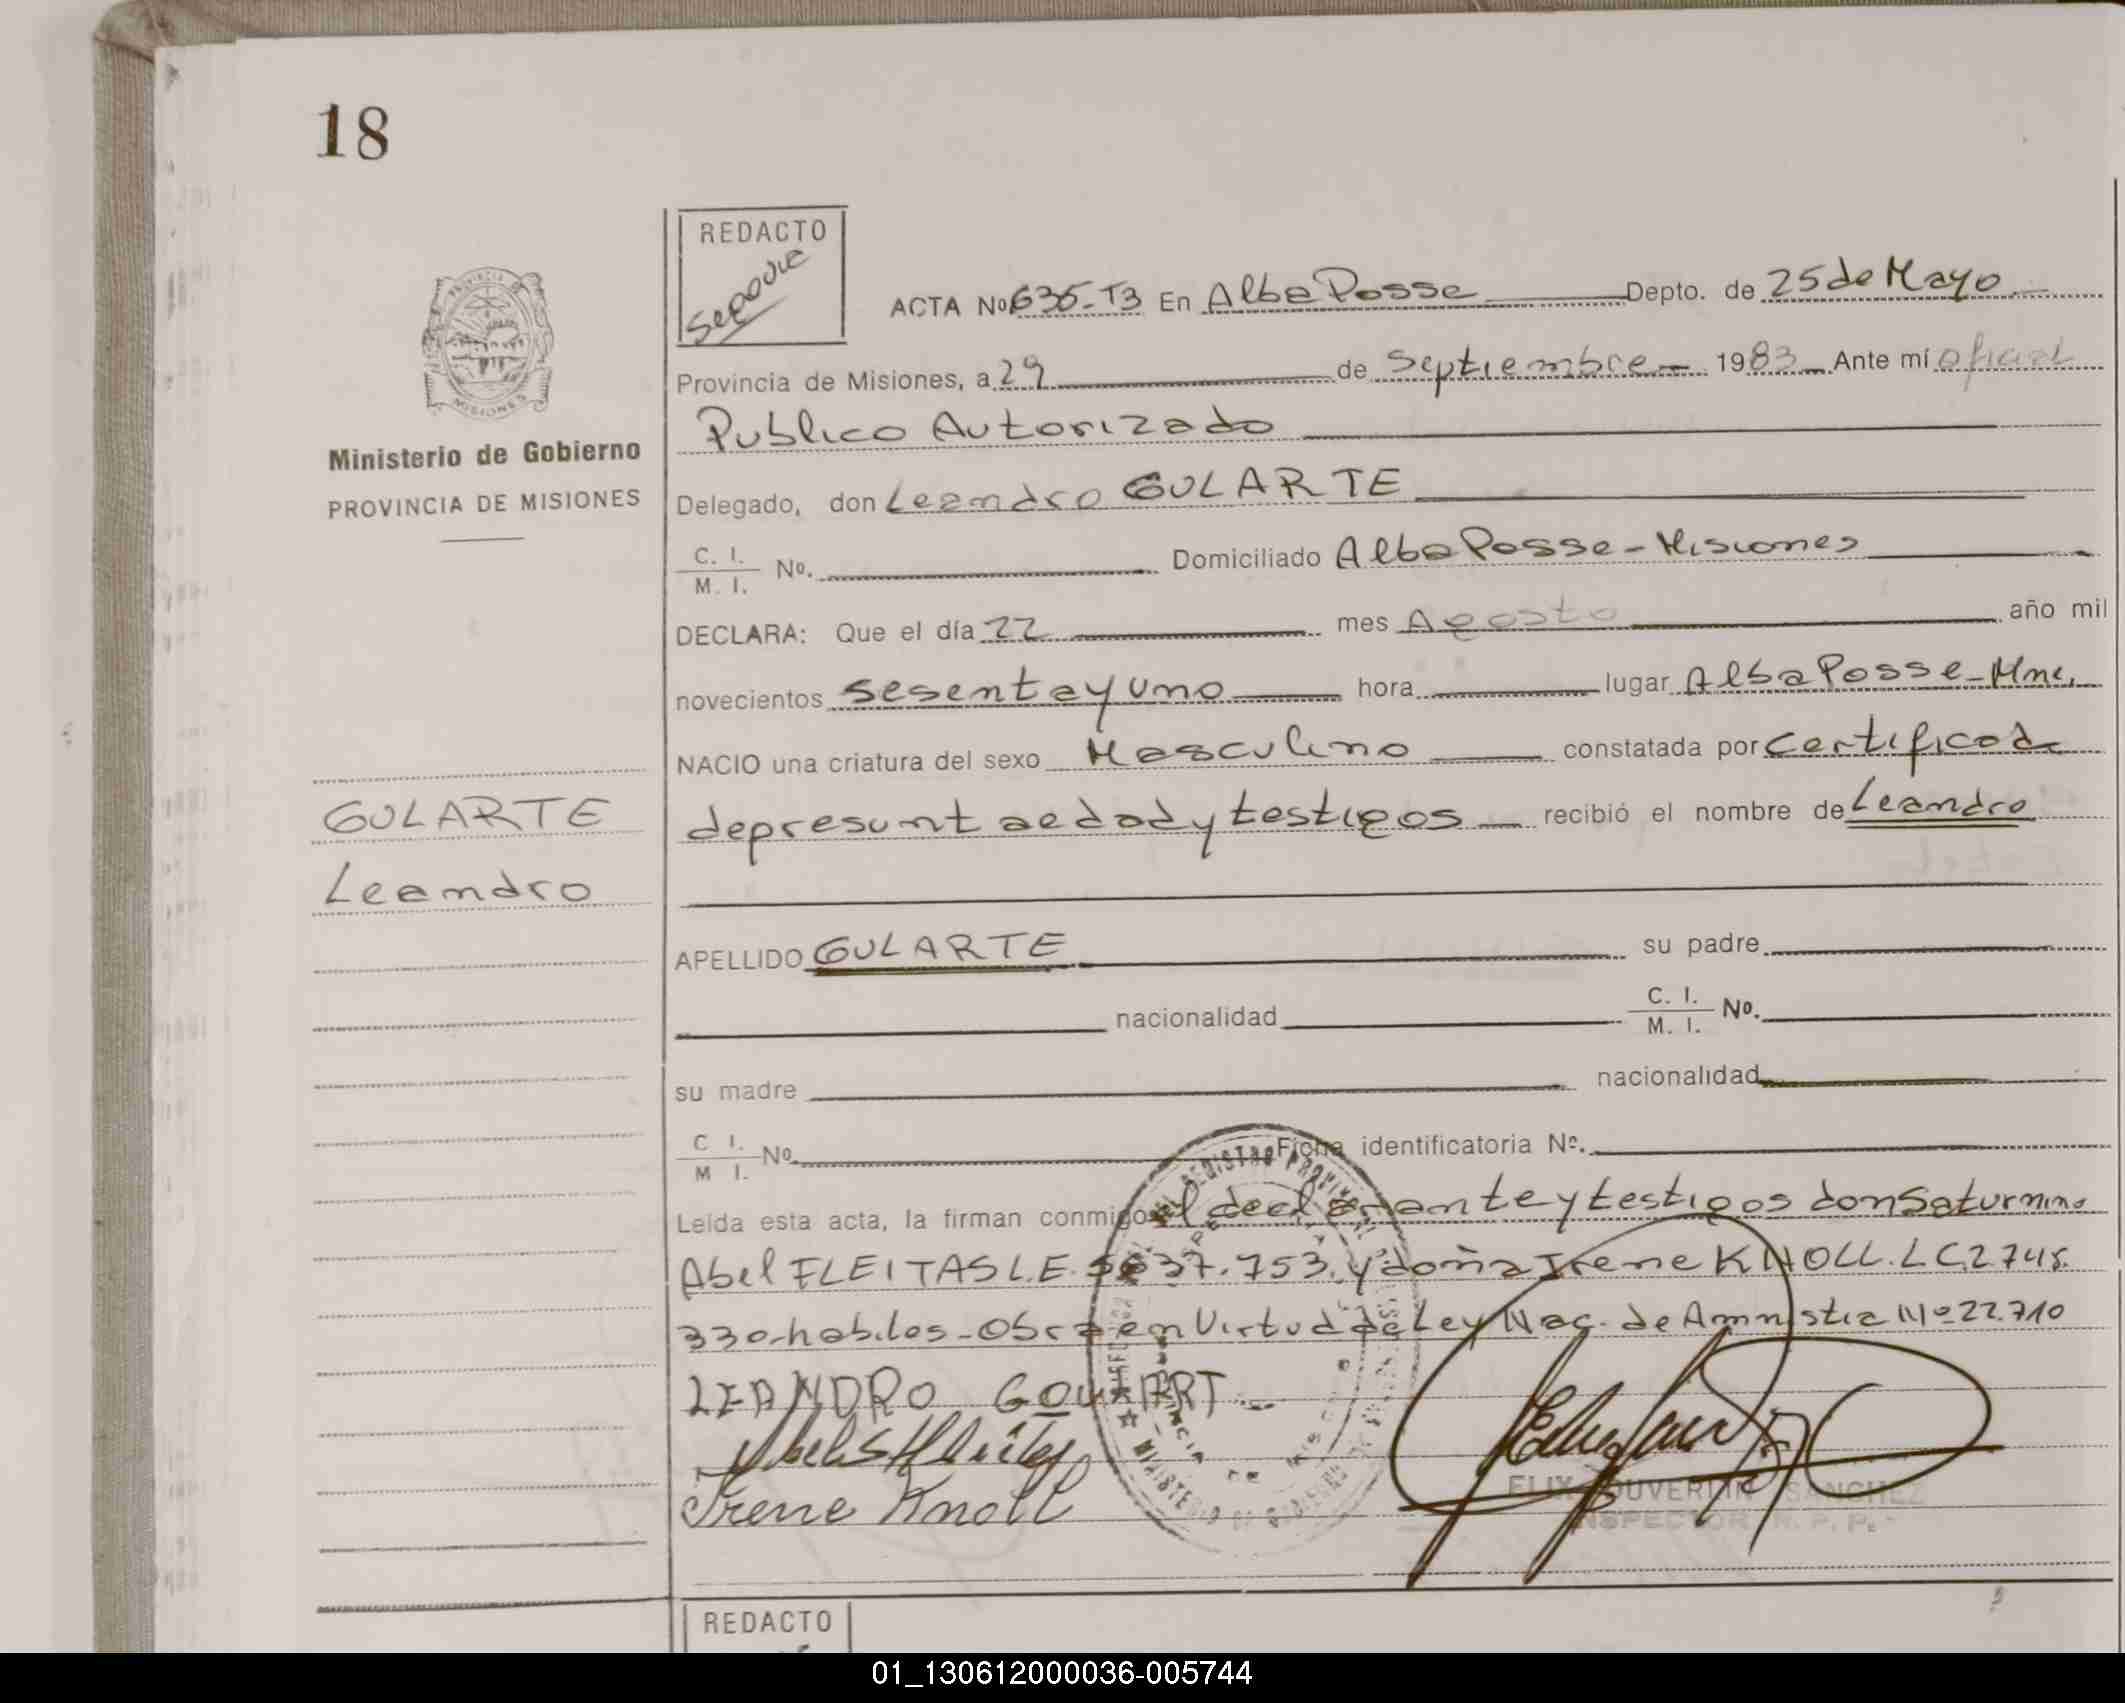 18
REDACTO
ACTA Nº 635-T3 En Alba Posse Depto. de 25 de Mayo
Provincia de Misiones, a 29 de Septiembre 1983 Ante mí oficial
Publico Autorizado
Delegado, don Leandro GULARTE
C. I.
M. I. Nº. Domiciliado Alba Posse-Misiones
DECLARA: Que el día 22 mes Agosto año mil
novecientos sesenta y uno hora lugar Alba Posse-Mnes.
NACIO una criatura del sexo Masculino constatada por certificado
de presunta edad y testigos recibió el nombre de Leandro
APELLIDO GULARTE su padre
nacionalidad C. I.
M. I. Nº.
su madre nacionalidad
C I.
M I. Nº Ficha identificatoria Nº.
Leída esta acta, la firman conmigo el declarante y testigos don Saturnino
Abel FLEITAS L.E. 37.753. y doña Irene KNOLL. LC. 2.748.
330-habiles-Obra en Virtud de Ley Nac. de Amnistia Nº 22.710
LEANDRO GOULART
Irene Knoll
SANCHEZ
INSPECTOR R. P. P.
PROVINCIA
MISIONES
Ministerio de Gobierno
PROVINCIA DE MISIONES
GULARTE
Leandro
REDACTO
01_130612000036-005744